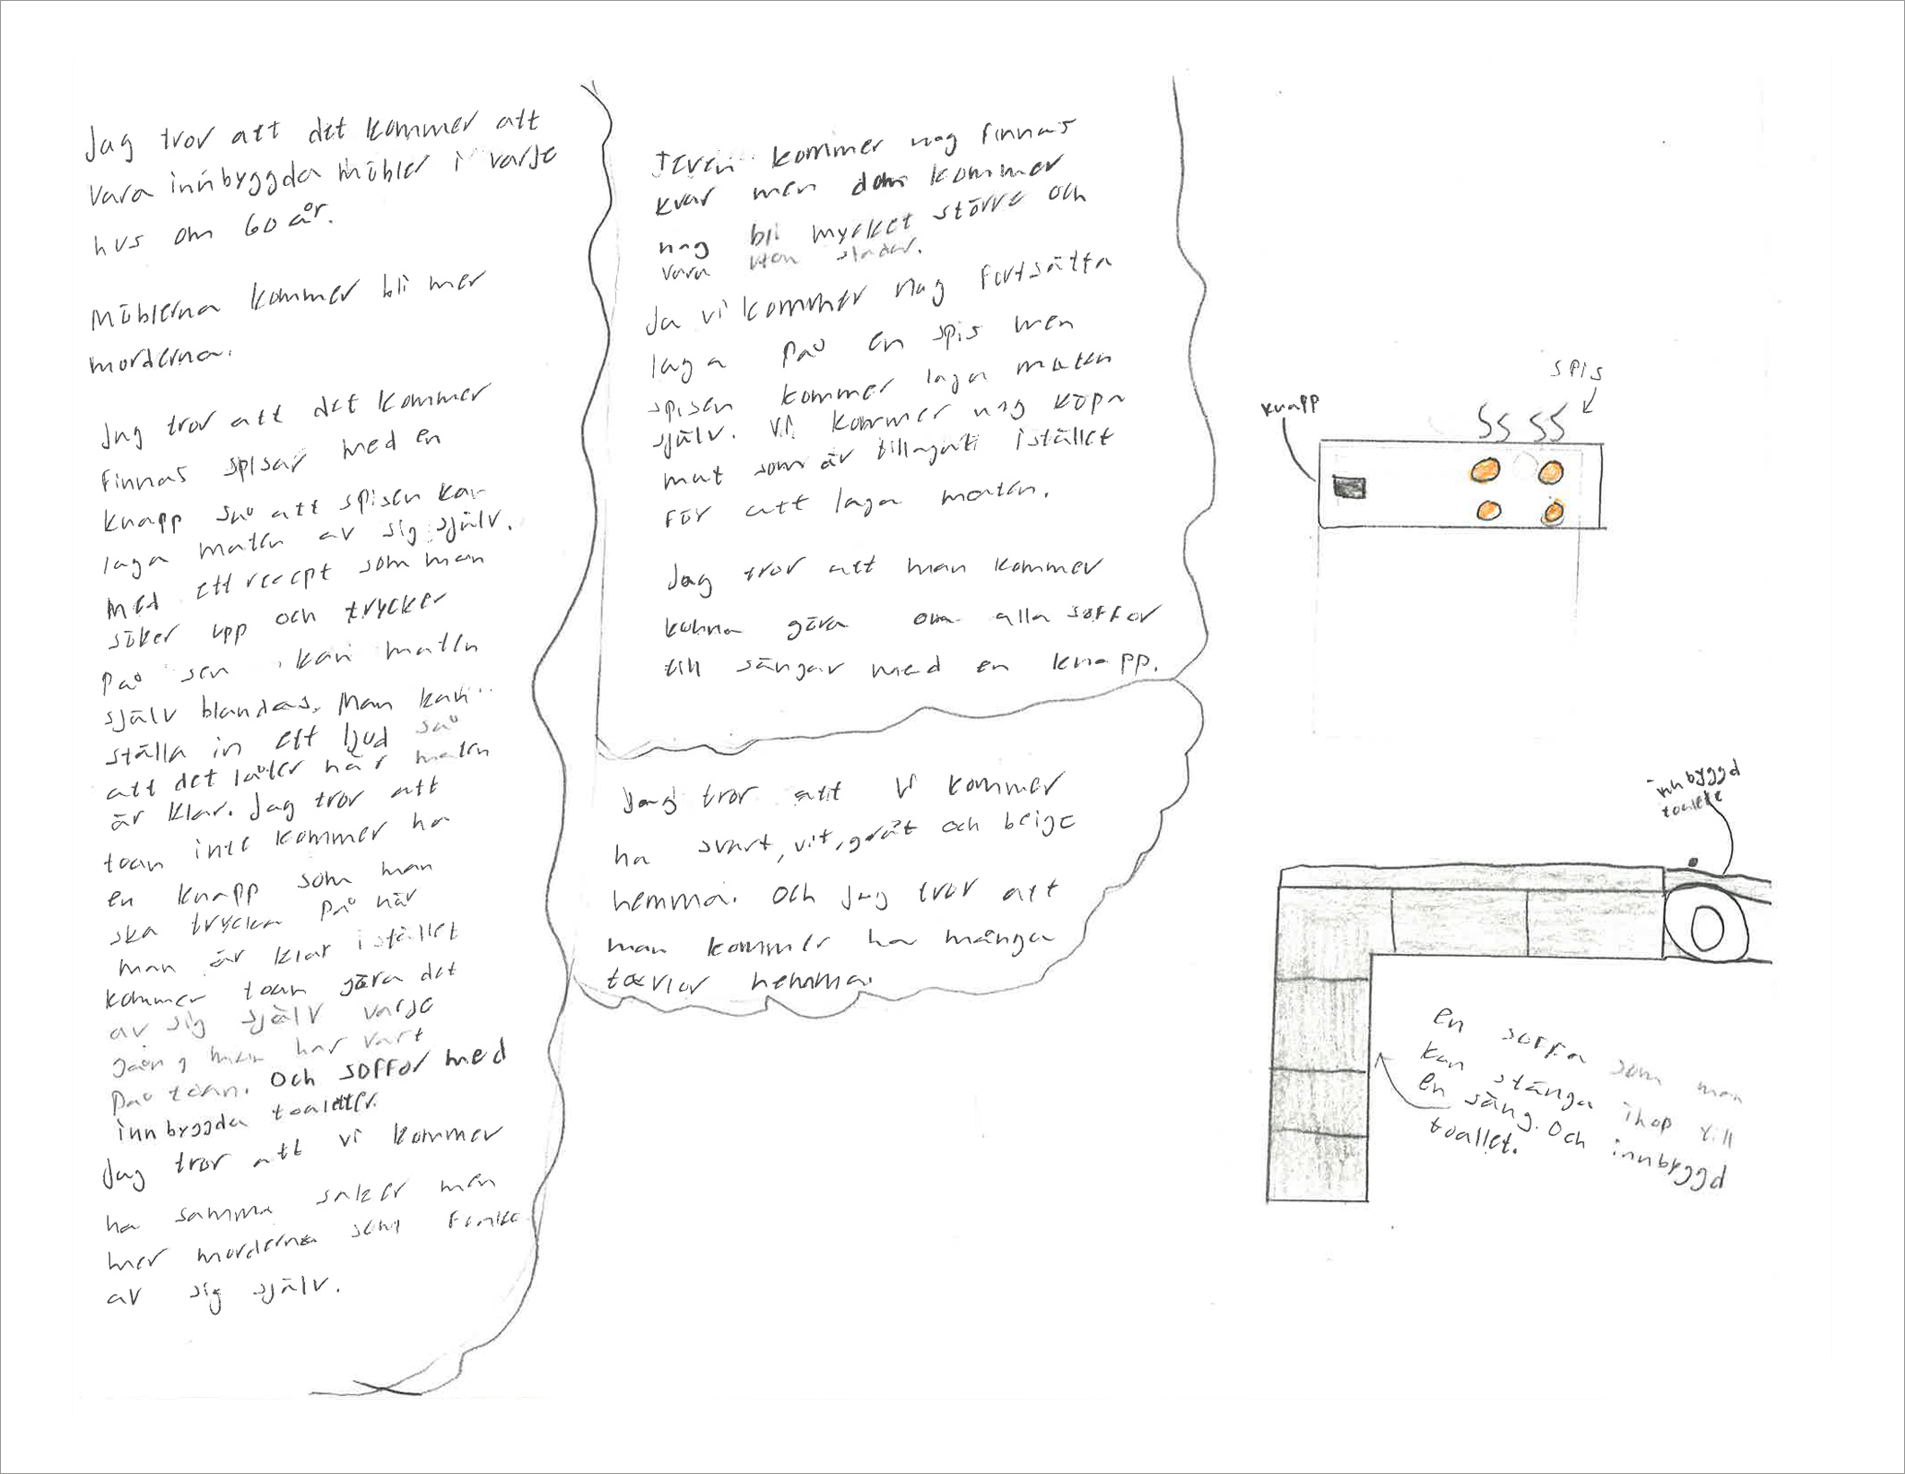 Jag tror att det kommer att
vara innbyggda möbler i varje
hus om 60 år.
Möblerna kommer bli mer
morderna.
Jag tror att det kommer
finnas spisar med en
knapp så att spisen kan
laga maten av sig själv.
med ett recept som man
söker upp och trycker
på sen kan maten
själv blandas. Man kan
ställa in ett ljud så
att det låter när maten
är klar. Jag tror att
toan inte kommer ha
en knapp som man
ska trycka på när
man är klar istället
kommer toan göra det
av sig själv varje
gång man har vart
på toan. Och soffor med
innbyggda toaletter.
Jag tror att vi kommer
ha samma saker men
mer morderna som funkar
av sig själv.
Teven kommer nog finnas
kvar men dom kommer
nog bli mycket större och
vara utan sladar.
Ja vi kommer nog fortsätta
laga på en spis men
spisen kommer laga maten
själv. Vi kommer nog köpa
mat som är tillagat istället
för att laga maten.
Jag tror att man kommer
kunna göra om alla soffor
till sängar med en knapp.
Jag tror att vi kommer
ha svart, vit, gråt och beige
hemma. Och jag tror att
man kommer ha många
tavlor hemma.
spis
knapp
innbyggd
toalete
en soffa som man
kan stänga ihop till
en säng. Och innbyggd
toallet.